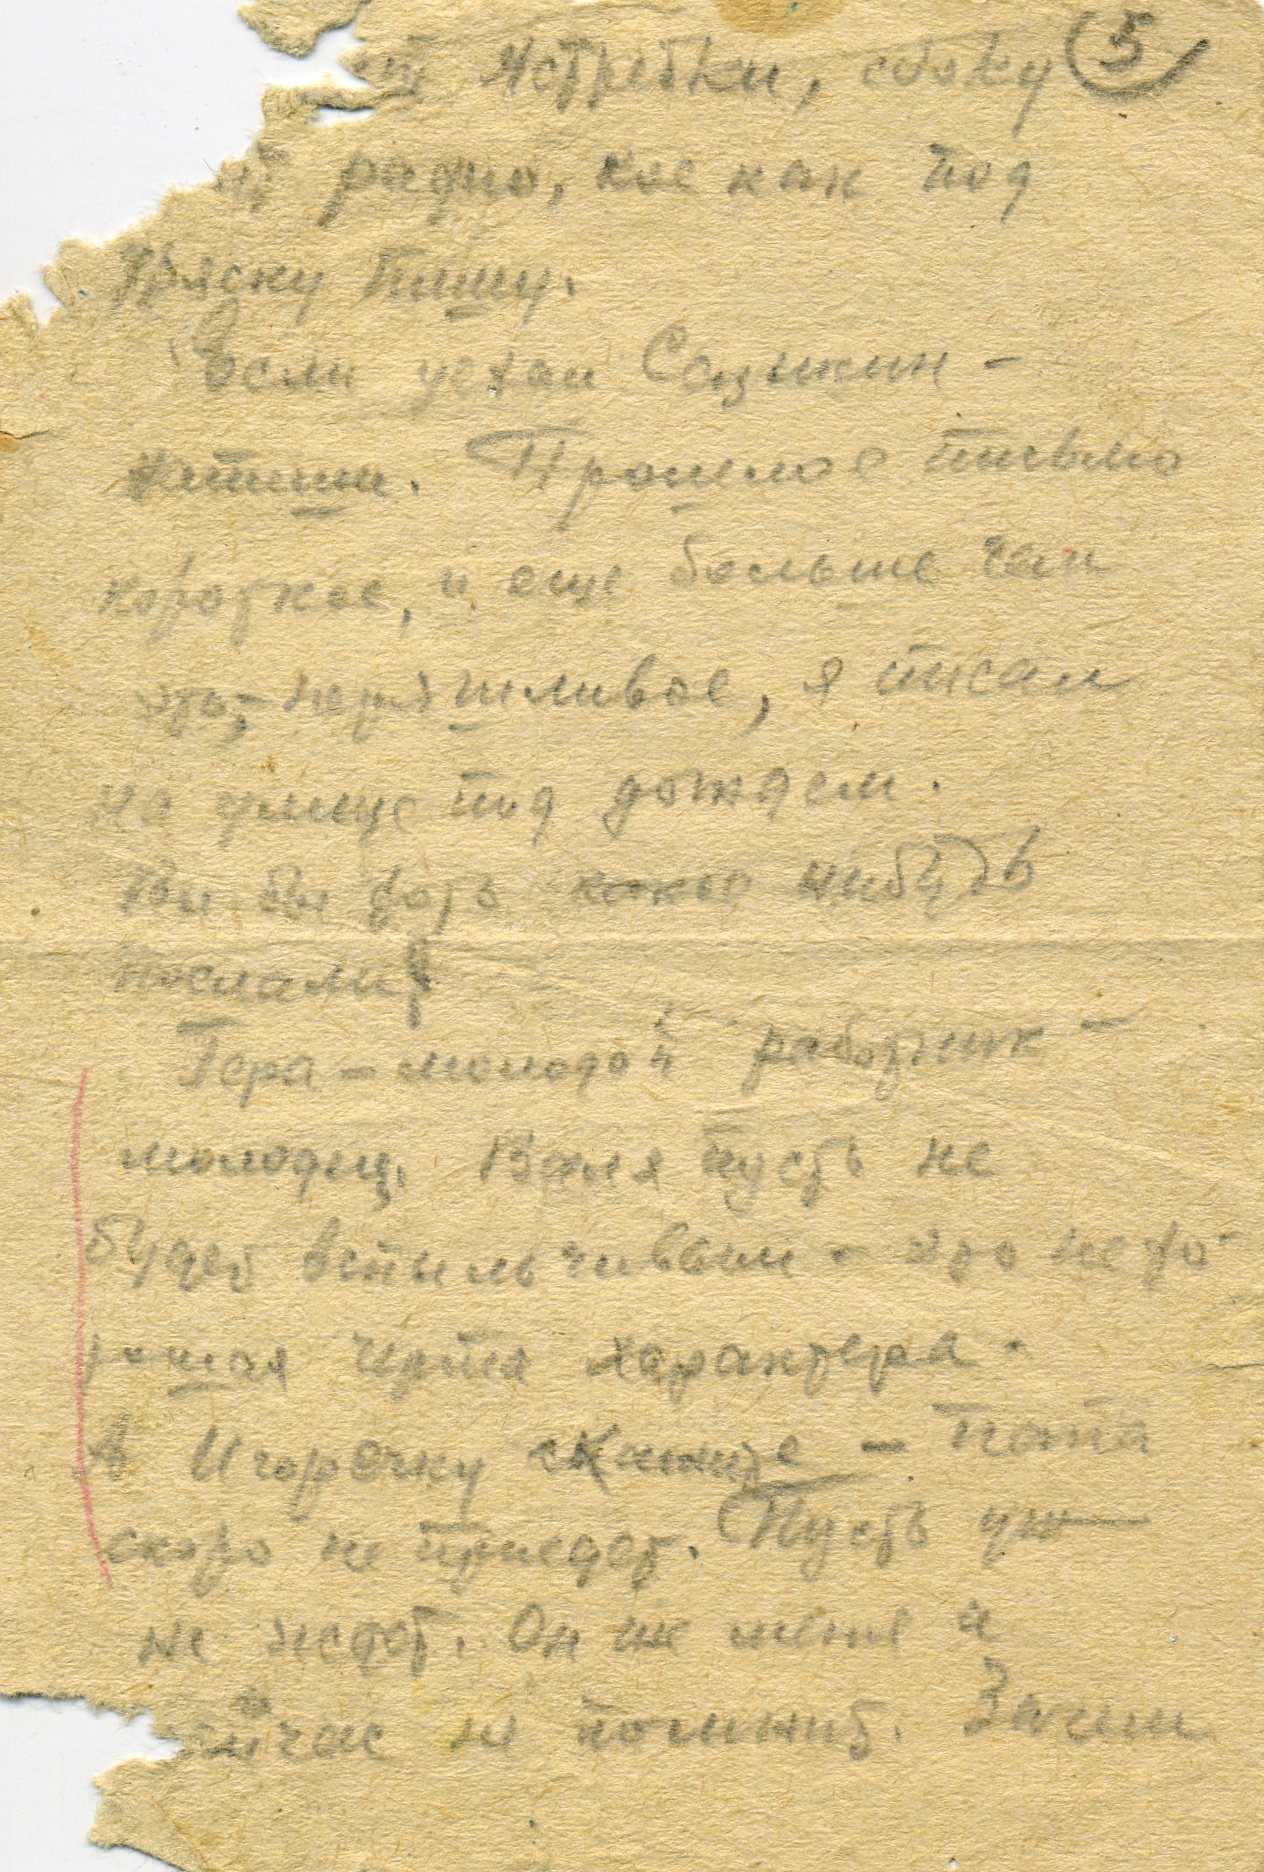 ят ястребки, сбоку 5
ит радио, кое как под
тряску пишу.
Если уехал Сацункин -
напиши. Прошлое письмо
короткое, и еще больше чем
это, - неряшливое, я писал
на улице под дождем.
Вы бы фото какое нибудь
послали!
Гера - молодой работник -
молодец. Валя пусть не
будет вспыльчивым - это нехо-
рошая черта характера.
А Игорочку скажите - папа
скоро не приедет. Пусть уж
не ждет. Он же меня и
сейчас не помнит. Зачем